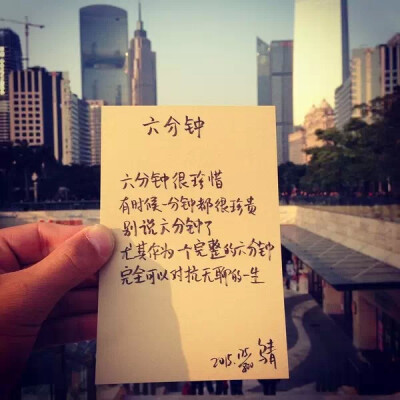 六分钟
六分钟很珍惜
有时候一分钟都很珍贵
别说六分钟了
尤其作为一个完整的六分钟
完全可以对抗无聊的一生